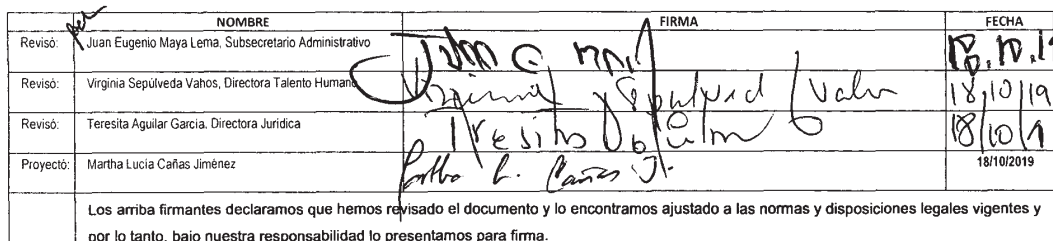 NOMBRE FIRMA FECHA
Revisó: Juan Eugenio Maya Lema, Subsecretario Administrativo
Revisó: Virginia Sepúlveda Vahos, Directora Talento Humano Virginia Sepulved Vahos 18/10/19
Revisó: Teresita Aguilar García, Directora Jurídica Teresita 18/10/1
Proyectó: Martha Lucía Cañas Jiménez Martha L. Cañas J. 18/10/2019
Los arriba firmantes declaramos que hemos revisado el documento y lo encontramos ajustado a las normas y disposiciones legales vigentes y
por lo tanto, bajo nuestra responsabilidad lo presentamos para firma.